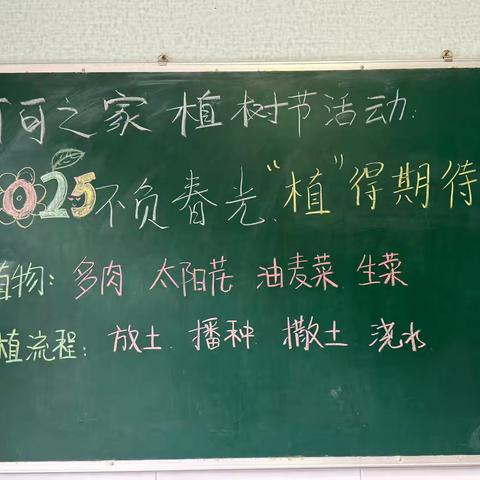 可之家 植树节活动:
2025 不负春光、“植”得期待
植物: 多肉 太阳花 油麦菜 生菜
植流程: 放土 播种 撒土 浇水